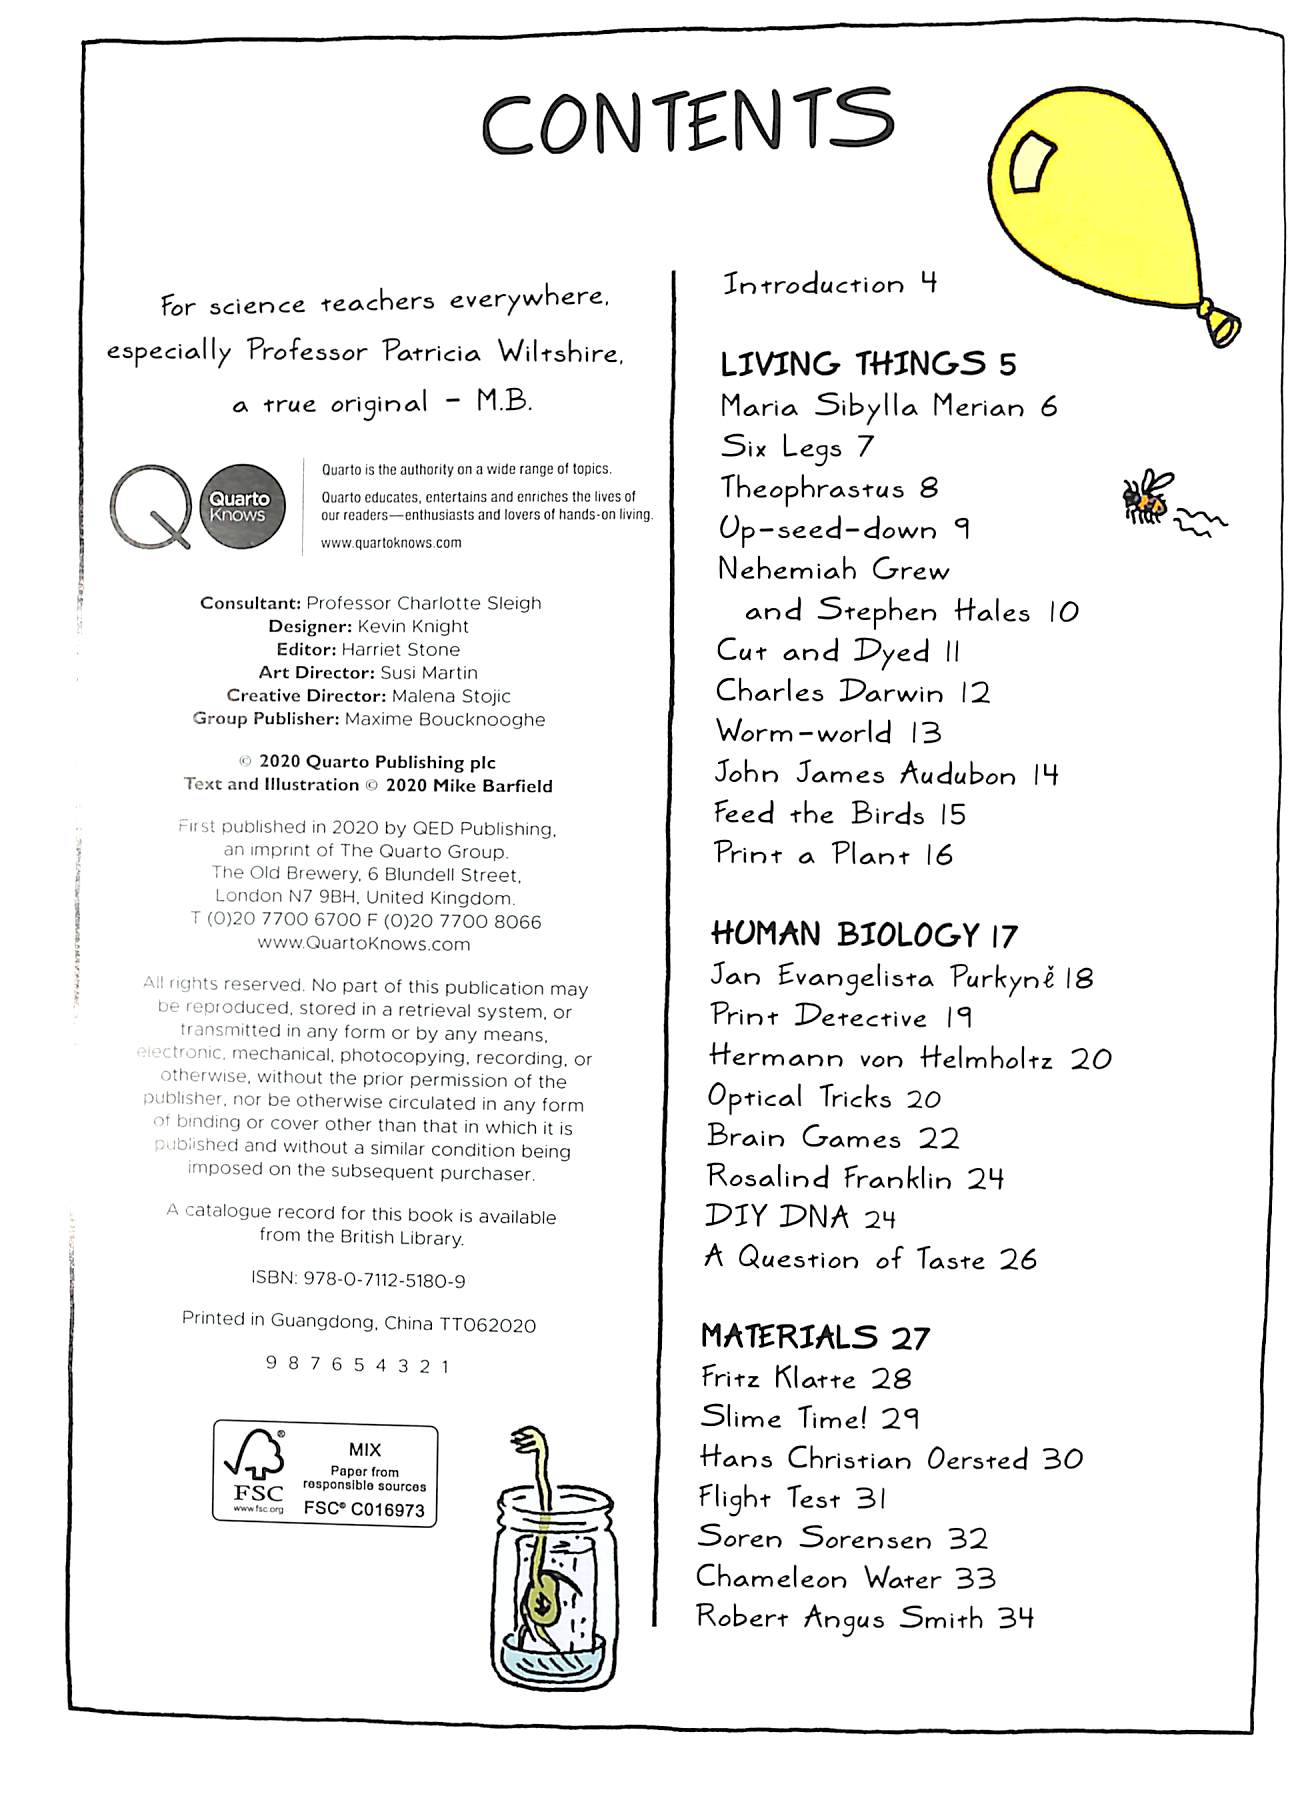 CONTENTS
For science teachers everywhere,
especially Professor Patricia Wiltshire,
a true original – M.B.
Quarto
Knows
Quarto is the authority on a wide range of topics.
Quarto educates, entertains and enriches the lives of
our readers—enthusiasts and lovers of hands-on living.
www.quartoknows.com
Consultant: Professor Charlotte Sleigh
Designer: Kevin Knight
Editor: Harriet Stone
Art Director: Susi Martin
Creative Director: Malena Stojic
Group Publisher: Maxime Boucknooghe
© 2020 Quarto Publishing plc
Text and Illustration © 2020 Mike Barfield
First published in 2020 by QED Publishing,
an imprint of The Quarto Group.
The Old Brewery, 6 Blundell Street,
London N7 9BH, United Kingdom.
T (0)20 7700 6700 F (0)20 7700 8066
www.QuartoKnows.com
All rights reserved. No part of this publication may
be reproduced, stored in a retrieval system, or
transmitted in any form or by any means,
electronic, mechanical, photocopying, recording, or
otherwise, without the prior permission of the
publisher, nor be otherwise circulated in any form
of binding or cover other than that in which it is
published and without a similar condition being
imposed on the subsequent purchaser.
A catalogue record for this book is available
from the British Library.
ISBN: 978-0-7112-5180-9
Printed in Guangdong, China TT062020
9 8 7 6 5 4 3 2 1
FSC®
www.fsc.org
MIX
Paper from
responsible sources
FSC® C016973
Introduction 4
LIVING THINGS 5
Maria Sibylla Merian 6
Six Legs 7
Theophrastus 8
Up-seed-down 9
Nehemiah Grew
and Stephen Hales 10
Cut and Dyed 11
Charles Darwin 12
Worm-world 13
John James Audubon 14
Feed the Birds 15
Print a Plant 16
HUMAN BIOLOGY 17
Jan Evangelista Purkyně 18
Print Detective 19
Hermann von Helmholtz 20
Optical Tricks 20
Brain Games 22
Rosalind Franklin 24
DIY DNA 24
A Question of Taste 26
MATERIALS 27
Fritz Klatte 28
Slime Time! 29
Hans Christian Oersted 30
Flight Test 31
Soren Sorensen 32
Chameleon Water 33
Robert Angus Smith 34